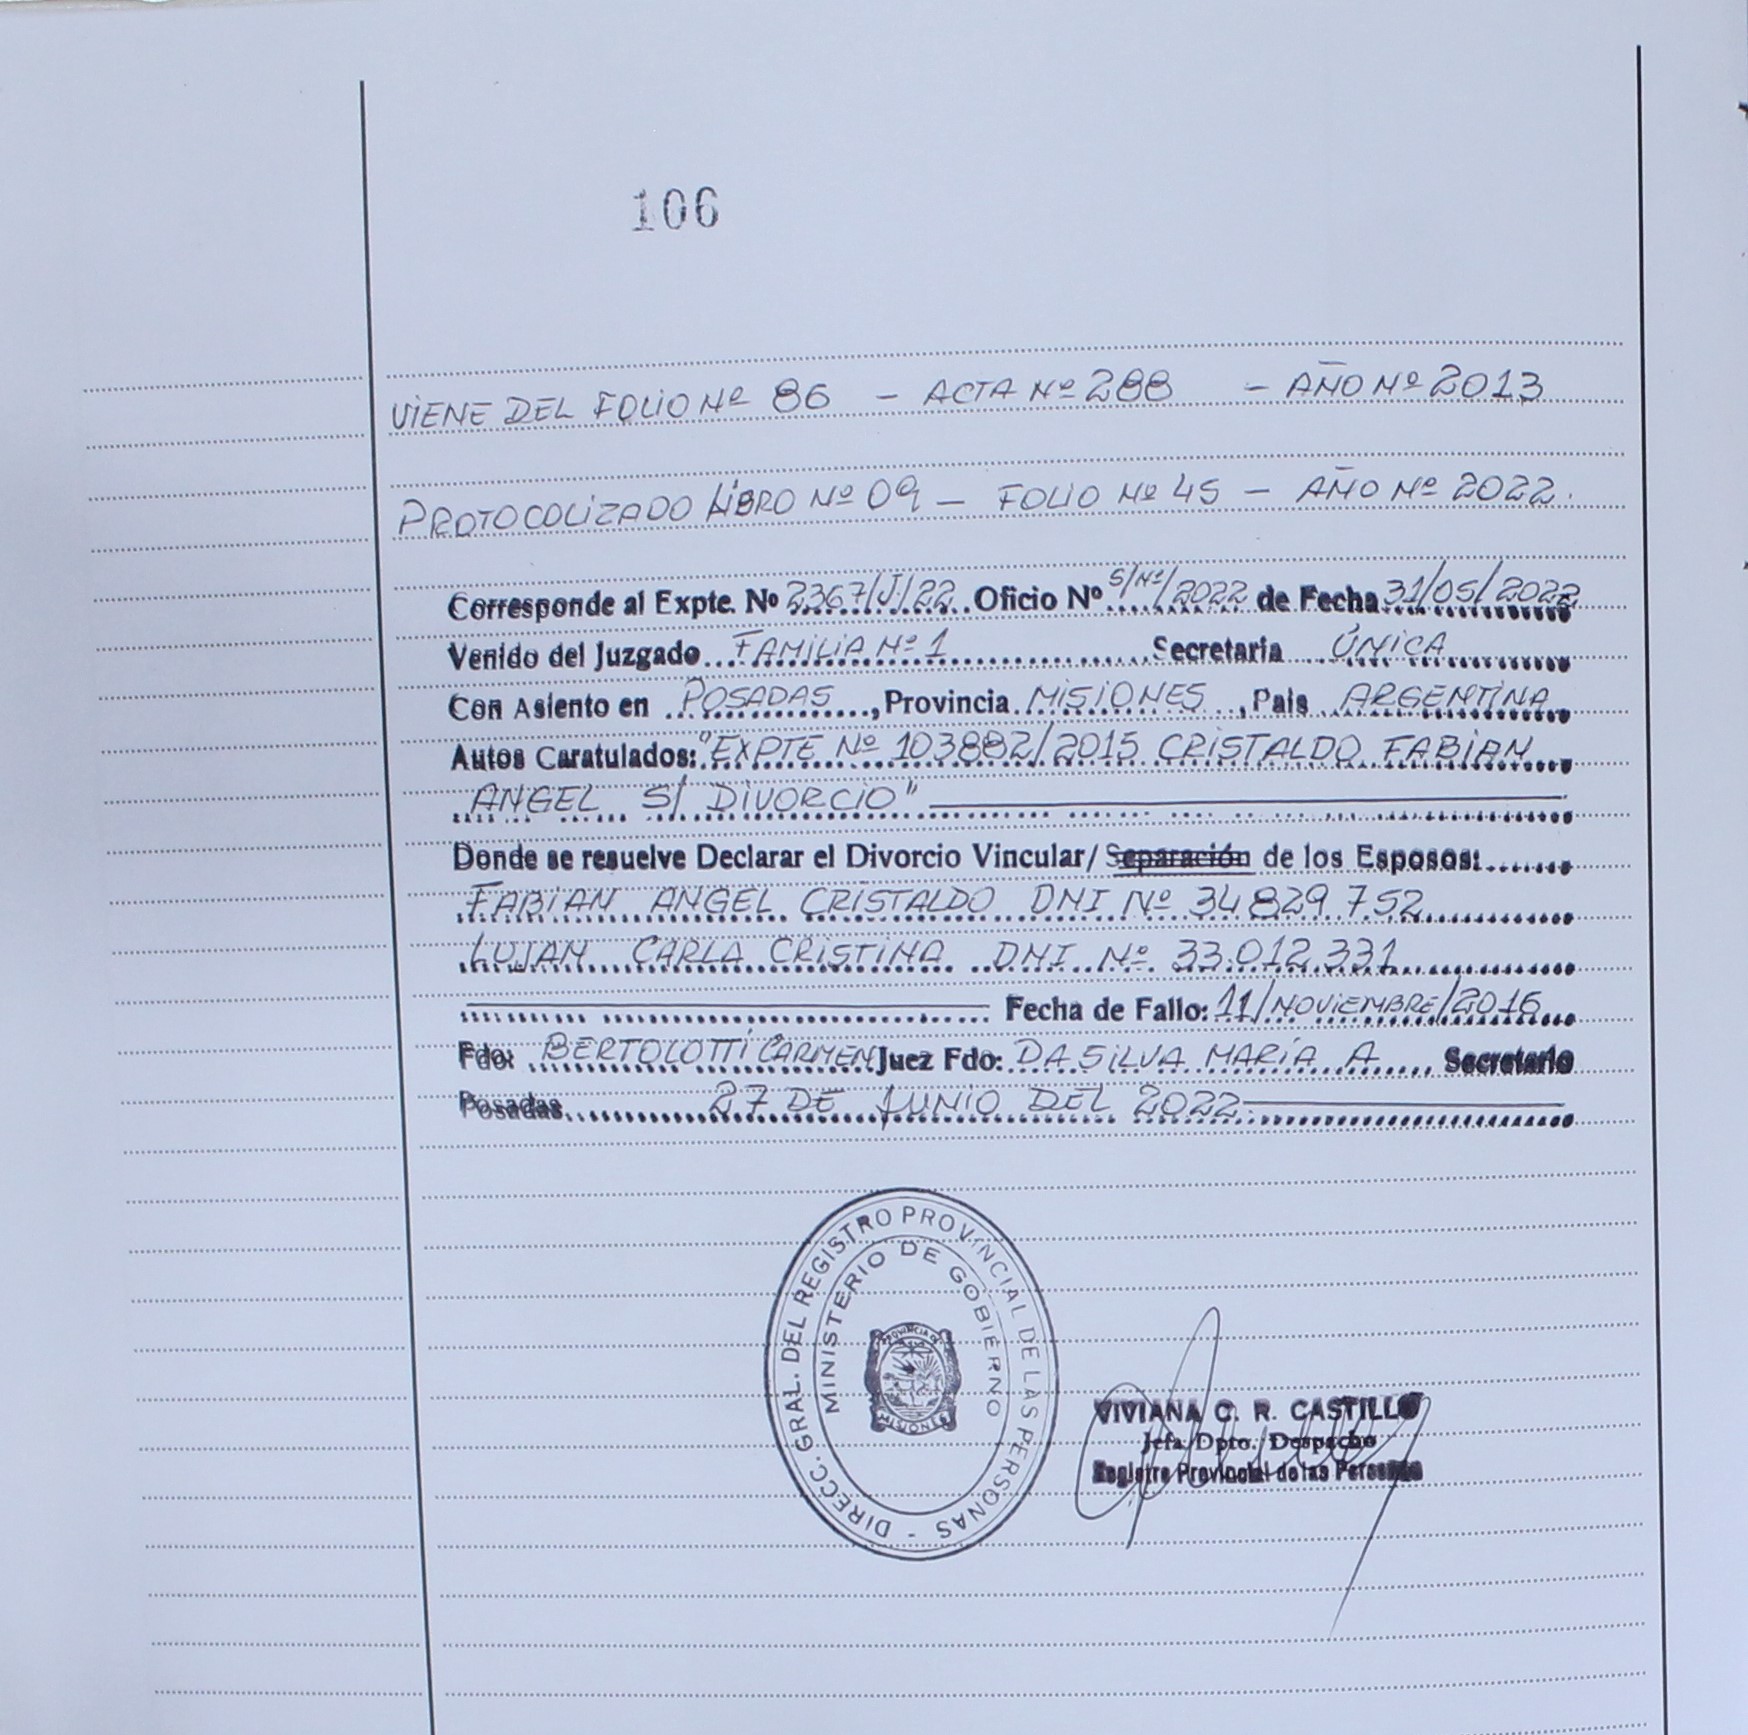 106
VIENE DEL FOLIO Nº 86 - ACTA Nº 288 - AÑO Nº 2013
PROTOCOLIZADO LIBRO Nº 09 - FOLIO Nº 45 - AÑO Nº 2022.
Corresponde al Expte. Nº 2367/J/22 Oficio Nº S/Nº/2022 de Fecha 31/05/2022
Venido del Juzgado FAMILIA Nº 1 Secretaria ÚNICA
Con Asiento en POSADAS, Provincia MISIONES, Pais ARGENTINA
Autos Caratulados: "EXPTE Nº 103882/2015 CRISTALDO FABIAN
ANGEL S/ DIVORCIO"
Donde se resuelve Declarar el Divorcio Vincular/ Separación de los Esposos:
FABIAN ANGEL CRISTALDO DNI Nº 34829752
LUJAN CARLA CRISTINA DNI Nº 33.012.331
Fecha de Fallo: 11/NOVIEMBRE/2016
Fdo: BERTOLOTTI CARMEN Juez Fdo: DA SILVA MARÍA A. Secretario
Posadas 27 DE JUNIO DEL 2022
DIRECC. GRAL. DEL REGISTRO PROVINCIAL DE LAS PERSONAS -
MINISTERIO DE GOBIERNO
PROVINCIA DE
MISIONES
VIVIANA C. R. CASTILLO
Jefa Dpto. Despacho
Registro Provincial de las Personas